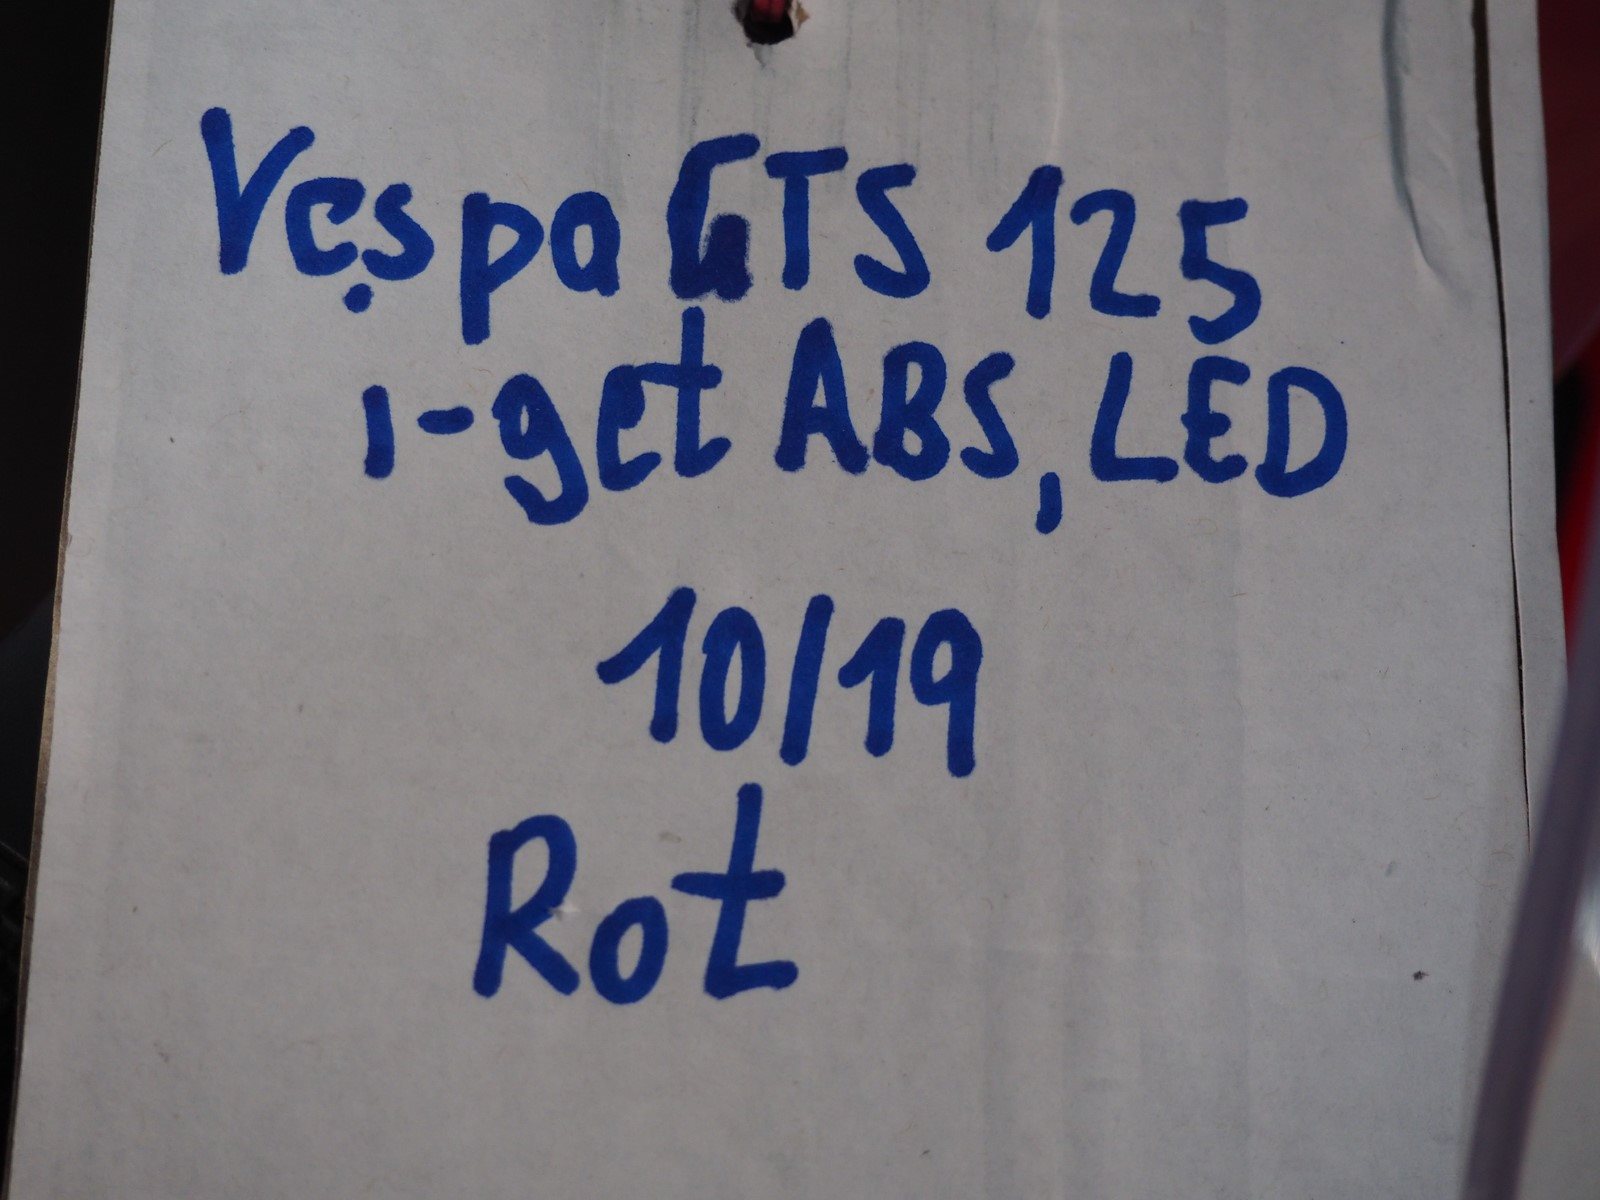 Vespa GTS 125
i-get ABS, LED
10/19
Rot